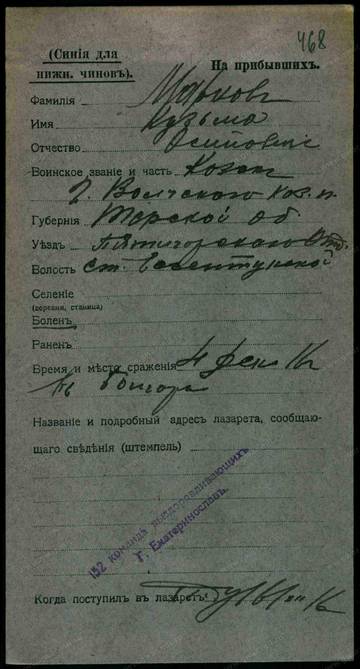 468
(Синія для
нижн. чиновъ).
На прибывшихъ.
Фамилія Марковъ
Имя Кузьма
Отчество Осиповичъ
Воинское званіе и часть Казакъ
2. Волгскаго каз. п.
Губернія Терской Об
Уѣздъ Пятигорскаго Отд.
Волость ст. Ессентукской
Селеніе
(деревня, станица)
Боленъ
Раненъ
Время и мѣсто сраженія 4
Названіе и подробный адресъ лазарета, сообщаю-
щаго свѣдѣнія (штемпель)
152 команда выздоравливающихъ
Г. Екатеринославъ.
Когда поступилъ въ лазаретъ